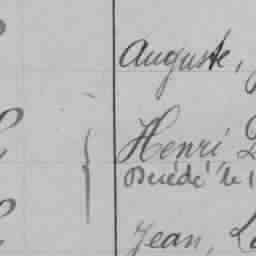 Auguste,
Henri
Décédé le 1
Jean,